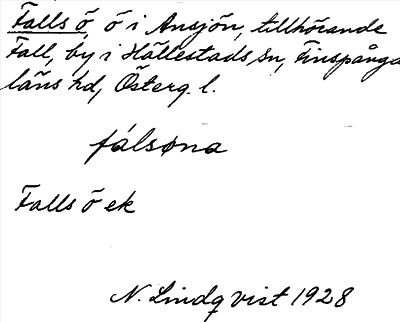 Falls ö, ö i Ansjön, tillhörande
Fall, by i Hällestads sn, Finspånga
läns hd, Österg. l.
fálsøna
Falls ö ek
N. Lindqvist 1928